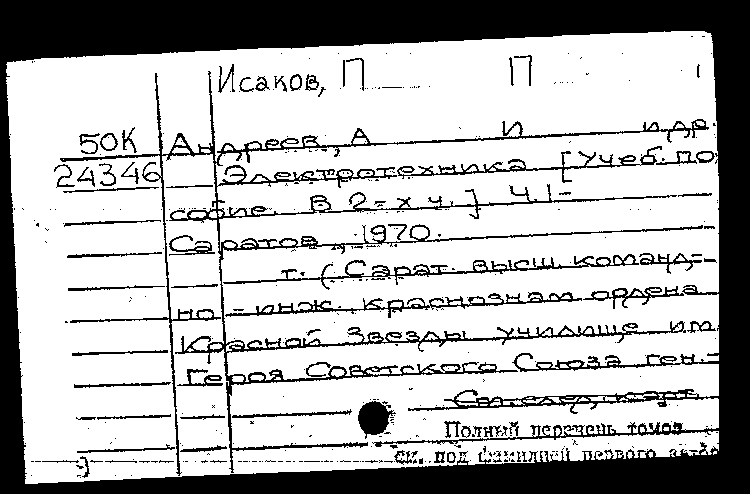 Исаков, П П
50К Андреев, А И и др.
24346 Электротехника [Учеб. по
собие. В 2-х ч.] Ч.1-
Саратов, 1970.
т. (Сарат. высш. команд-
но-инж. краснознам ордена
Красной Звезды училище им
Героя Советского Союза ген.-
См. след. карт.
Полный перечень томов
см. под фамилией первого автора
9